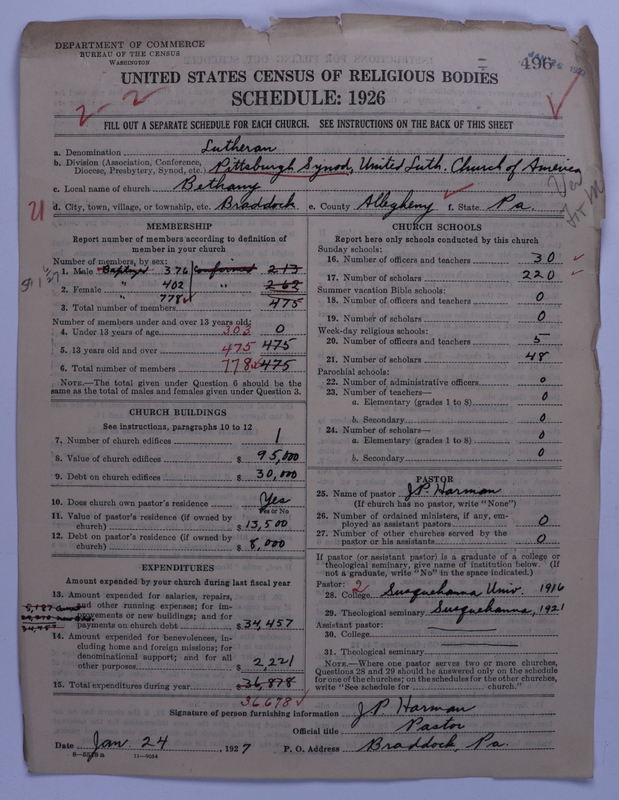 DEPARTMENT OF COMMERCE
BUREAU OF THE CENSUS
WASHINGTON
496
UNITED STATES CENSUS OF RELIGIOUS BODIES
SCHEDULE: 1926
2-2
FILL OUT A SEPARATE SCHEDULE FOR EACH CHURCH. SEE INSTRUCTIONS ON THE BACK OF THIS SHEET
a. Denomination Lutheran
b. Division (Association, Conference, Diocese, Presbytery, Synod, etc.) Pittsburgh Synod, United Luth. Church of America
c. Local name of church Bethany
d. City, town, village, or township, etc. Braddock e. County Allegheny f. State Pa.
21
MEMBERSHIP
Report number of members according to definition of
member in your church
Number of members, by sex:
1. Male Baptized 376 Confirmed 213
2. Female " 402 " 262
" 778
3. Total number of members 475
Number of members under and over 13 years old:
4. Under 13 years of age 303 0
5. 13 years old and over 475 475
6. Total number of members 778 475
NOTE.—The total given under Question 6 should be the
same as the total of males and females given under Question 3.
CHURCH BUILDINGS
See instructions, paragraphs 10 to 12
7. Number of church edifices 1
8. Value of church edifices $ 95,000
9. Debt on church edifices $ 30,000
10. Does church own pastor's residence Yes
Yes or No
11. Value of pastor's residence (if owned by
church) $ 13,500
12. Debt on pastor's residence (if owned by
church) $ 8,000
EXPENDITURES
Amount expended by your church during last fiscal year
13. Amount expended for salaries, repairs,
and other running expenses; for im-
provements or new buildings; and for
payments on church debt $ 34,457
14. Amount expended for benevolences, in-
cluding home and foreign missions; for
denominational support; and for all
other purposes $ 2,221
15. Total expenditures during year $ 36,878
36678
CHURCH SCHOOLS
Report here only schools conducted by this church
Sunday schools:
16. Number of officers and teachers 30
17. Number of scholars 220
Summer vacation Bible schools:
18. Number of officers and teachers 0
19. Number of scholars 0
Week-day religious schools:
20. Number of officers and teachers 5
21. Number of scholars 48
Parochial schools:
22. Number of administrative officers 0
23. Number of teachers—
a. Elementary (grades 1 to 8) 0
b. Secondary 0
24. Number of scholars—
a. Elementary (grades 1 to 8) 0
b. Secondary 0
PASTOR
25. Name of pastor J.P. Harman
(If church has no pastor, write "None")
26. Number of ordained ministers, if any, em-
ployed as assistant pastors 0
27. Number of other churches served by the
pastor or his assistants 0
If pastor (or assistant pastor) is a graduate of a college or
theological seminary, give name of institution below. (If
not a graduate, write "No" in the space indicated.)
Pastor: 2
28. College Susquehanna Univ. 1916
29. Theological seminary Susquehanna, 1921
Assistant pastor:
30. College
31. Theological seminary
NOTE.—Where one pastor serves two or more churches,
Questions 28 and 29 should be answered only on the schedule
for one of the churches; on the schedules for the other churches,
write "See schedule for church."
Signature of person furnishing information J.P. Harman
Official title Pastor
Date Jan. 24 1927 P. O. Address Braddock, Pa.
11—9054